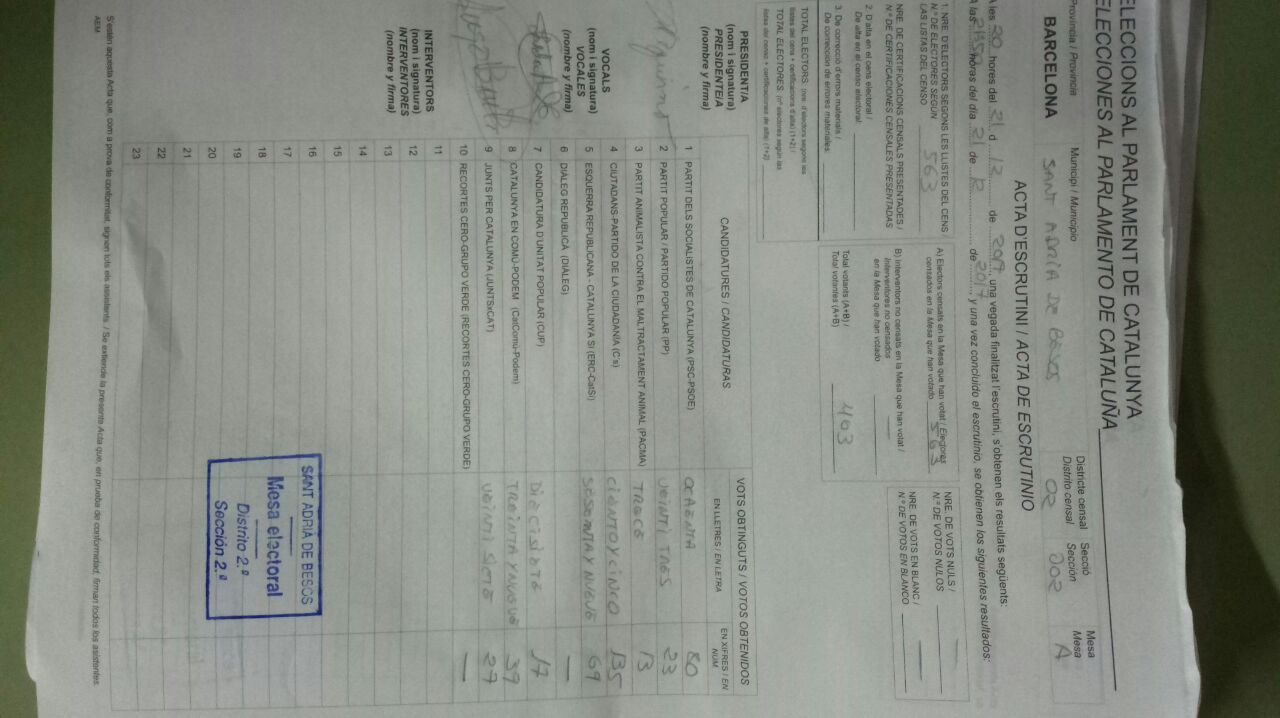 ELECCIONS AL PARLAMENT DE CATALUNYA
ELECCIONES AL PARLAMENTO DE CATALUÑA
Provincia / Provincia Municipi / Municipio Districte censal Secció Mesa
Distrito censal Sección Mesa
BARCELONA SANT ADRIA DE BESOS 02 002 A
ACTA D'ESCRUTINI / ACTA DE ESCRUTINIO
A les 20 hores del 21 d 12 de 2017, una vegada finalitzat l'escrutini, s'obtenen els resultats següents:
A las horas del día 21 de 12 de 2017 y una vez concluido el escrutinio, se obtienen los siguientes resultados:
1. NRE. D'ELECTORS SEGONS LES LLISTES DEL CENS /
N.º DE ELECTORES SEGÚN
LAS LISTAS DEL CENSO 563
NRE. DE CERTIFICACIONS CENSALS PRESENTADES /
N.º DE CERTIFICACIONES CENSALES PRESENTADAS
2. D'alta en el cens electoral /
De alta en el censo electoral:
3. De correcció d'errors materials /
De corrección de errores materiales:
TOTAL ELECTORS: (nre. d'electors segons les
llistes del cens + certificacions d'alta) (1+2) /
TOTAL ELECTORES: (nº electores según las
listas del censo + certificaciones de alta) (1+2)
A) Electors censats en la Mesa que han votat / Electores
censados en la Mesa que han votado 563
B) Interventors no censats en la Mesa que han votat /
Interventores no censados
en la Mesa que han votado —
Total votants (A+B) /
Total votantes (A+B) 403
NRE. DE VOTS NULS /
N.º DE VOTOS NULOS —
NRE. DE VOTS EN BLANC /
N.º DE VOTOS EN BLANCO —
PRESIDENT/A
(nom i signatura)
PRESIDENTE/A
(nombre y firma)
VOCALS
(nom i signatura)
VOCALES
(nombre y firma)
INTERVENTORS
(nom i signatura)
INTERVENTORES
(nombre y firma)
CANDIDATURES / CANDIDATURAS VOTS OBTINGUTS / VOTOS OBTENIDOS
EN LLETRES / EN LETRA EN XIFRES / EN NUM.
1 PARTIT DELS SOCIALISTES DE CATALUNYA (PSC-PSOE) OCHENTA 80
2 PARTIT POPULAR / PARTIDO POPULAR (PP) VEINTI TRES 23
3 PARTIT ANIMALISTA CONTRA EL MALTRACTAMENT ANIMAL (PACMA) TRECE 13
4 CIUTADANS-PARTIDO DE LA CIUDADANÍA (C's) CIENTO Y CINCO 135
5 ESQUERRA REPUBLICANA - CATALUNYA SÍ (ERC-CatSí) SESENTA Y NUEVE 69
6 DIÀLEG REPUBLICÀ (DIÀLEG) —
7 CANDIDATURA D'UNITAT POPULAR (CUP) DIECISIETE 17
8 CATALUNYA EN COMÚ-PODEM (CatComú-Podem) TREINTA Y NUEVE 39
9 JUNTS PER CATALUNYA (JUNTSxCAT) VEINTI SIETE 27
10 RECORTES CERO-GRUPO VERDE (RECORTES CERO-GRUPO VERDE) —
11
12
13
14
15
16
17
18
19
20
21
22
23
SANT ADRIÀ DE BESÒS
Mesa electoral
Distrito 2.º
Sección 2.ª
S'estén aquesta Acta que, com a prova de conformitat, signen tots els assistents. / Se extiende la presente Acta que, en prueba de conformidad, firman todos los asistentes.
AEM